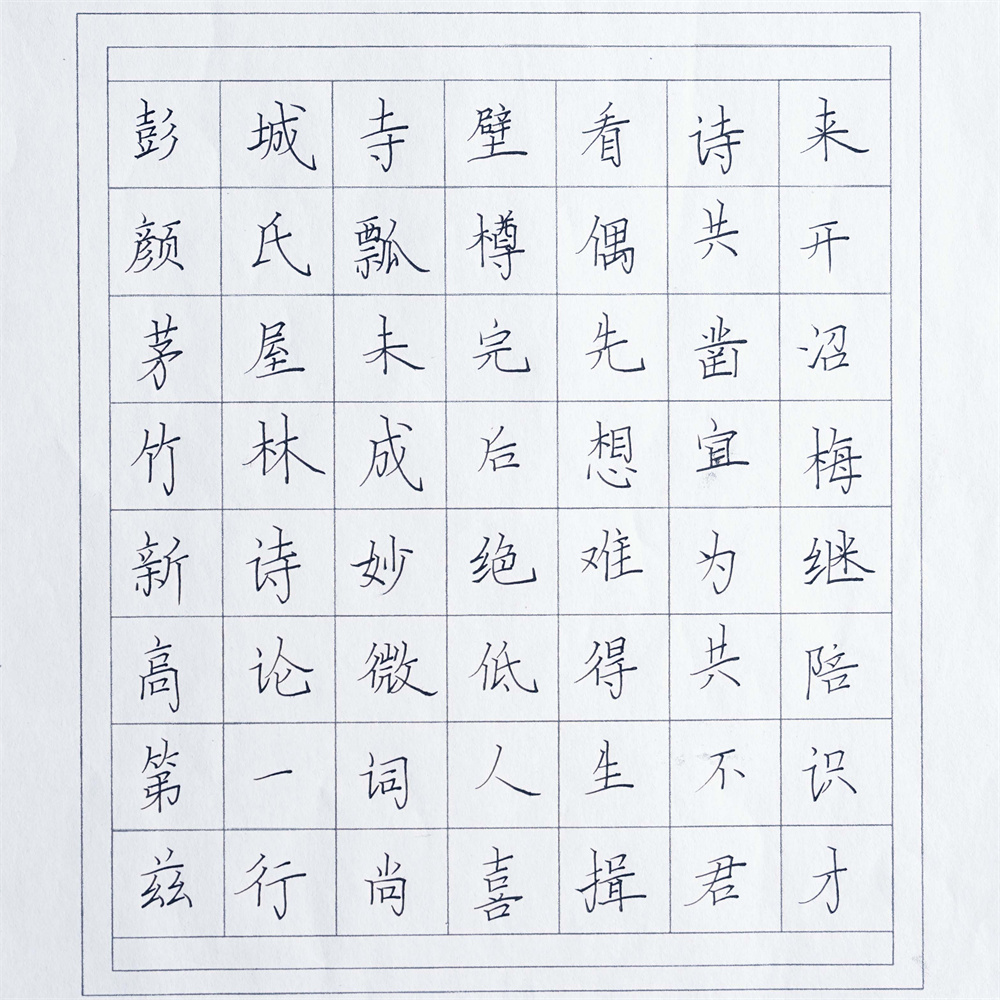 彭城寺壁看诗来
颜氏瓢樽偶共开
茅屋未完先凿沼
竹林成后想宜梅
新诗妙绝难为继
高论微低得共陪
第一词人生不识
兹行尚喜揖君才